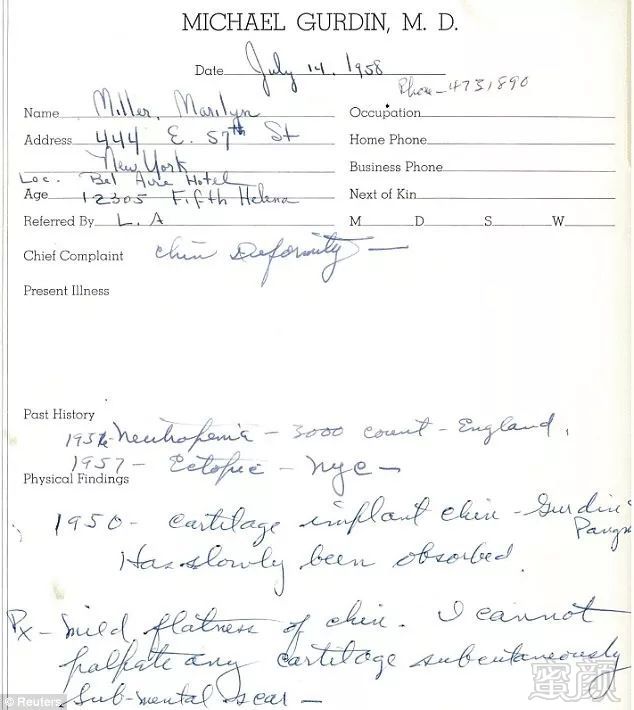 MICHAEL GURDIN, M. D.
Date July 14, 1958
Phone - 4731890
Name Miller, Marilyn
Occupation
Address 444 E. 57th St
Home Phone
New York
Business Phone
Loc. Bel Aire Hotel
Age 12305 Fifth Helena
Next of Kin
Referred By L. A
M D S W
Chief Complaint Chin Deformity —
Present Illness
Past History
1956 - Neutropenia - 3000 count - England.
1957 - Ectopic - NYC -
Physical Findings
1950 - cartilage implant chin - Gurdin
Has slowly been absorbed.
Px - Mild flatness of chin. I cannot
palpate any cartilage subcutaneously
Sub-mental scar -
© Reuters
蜜颜